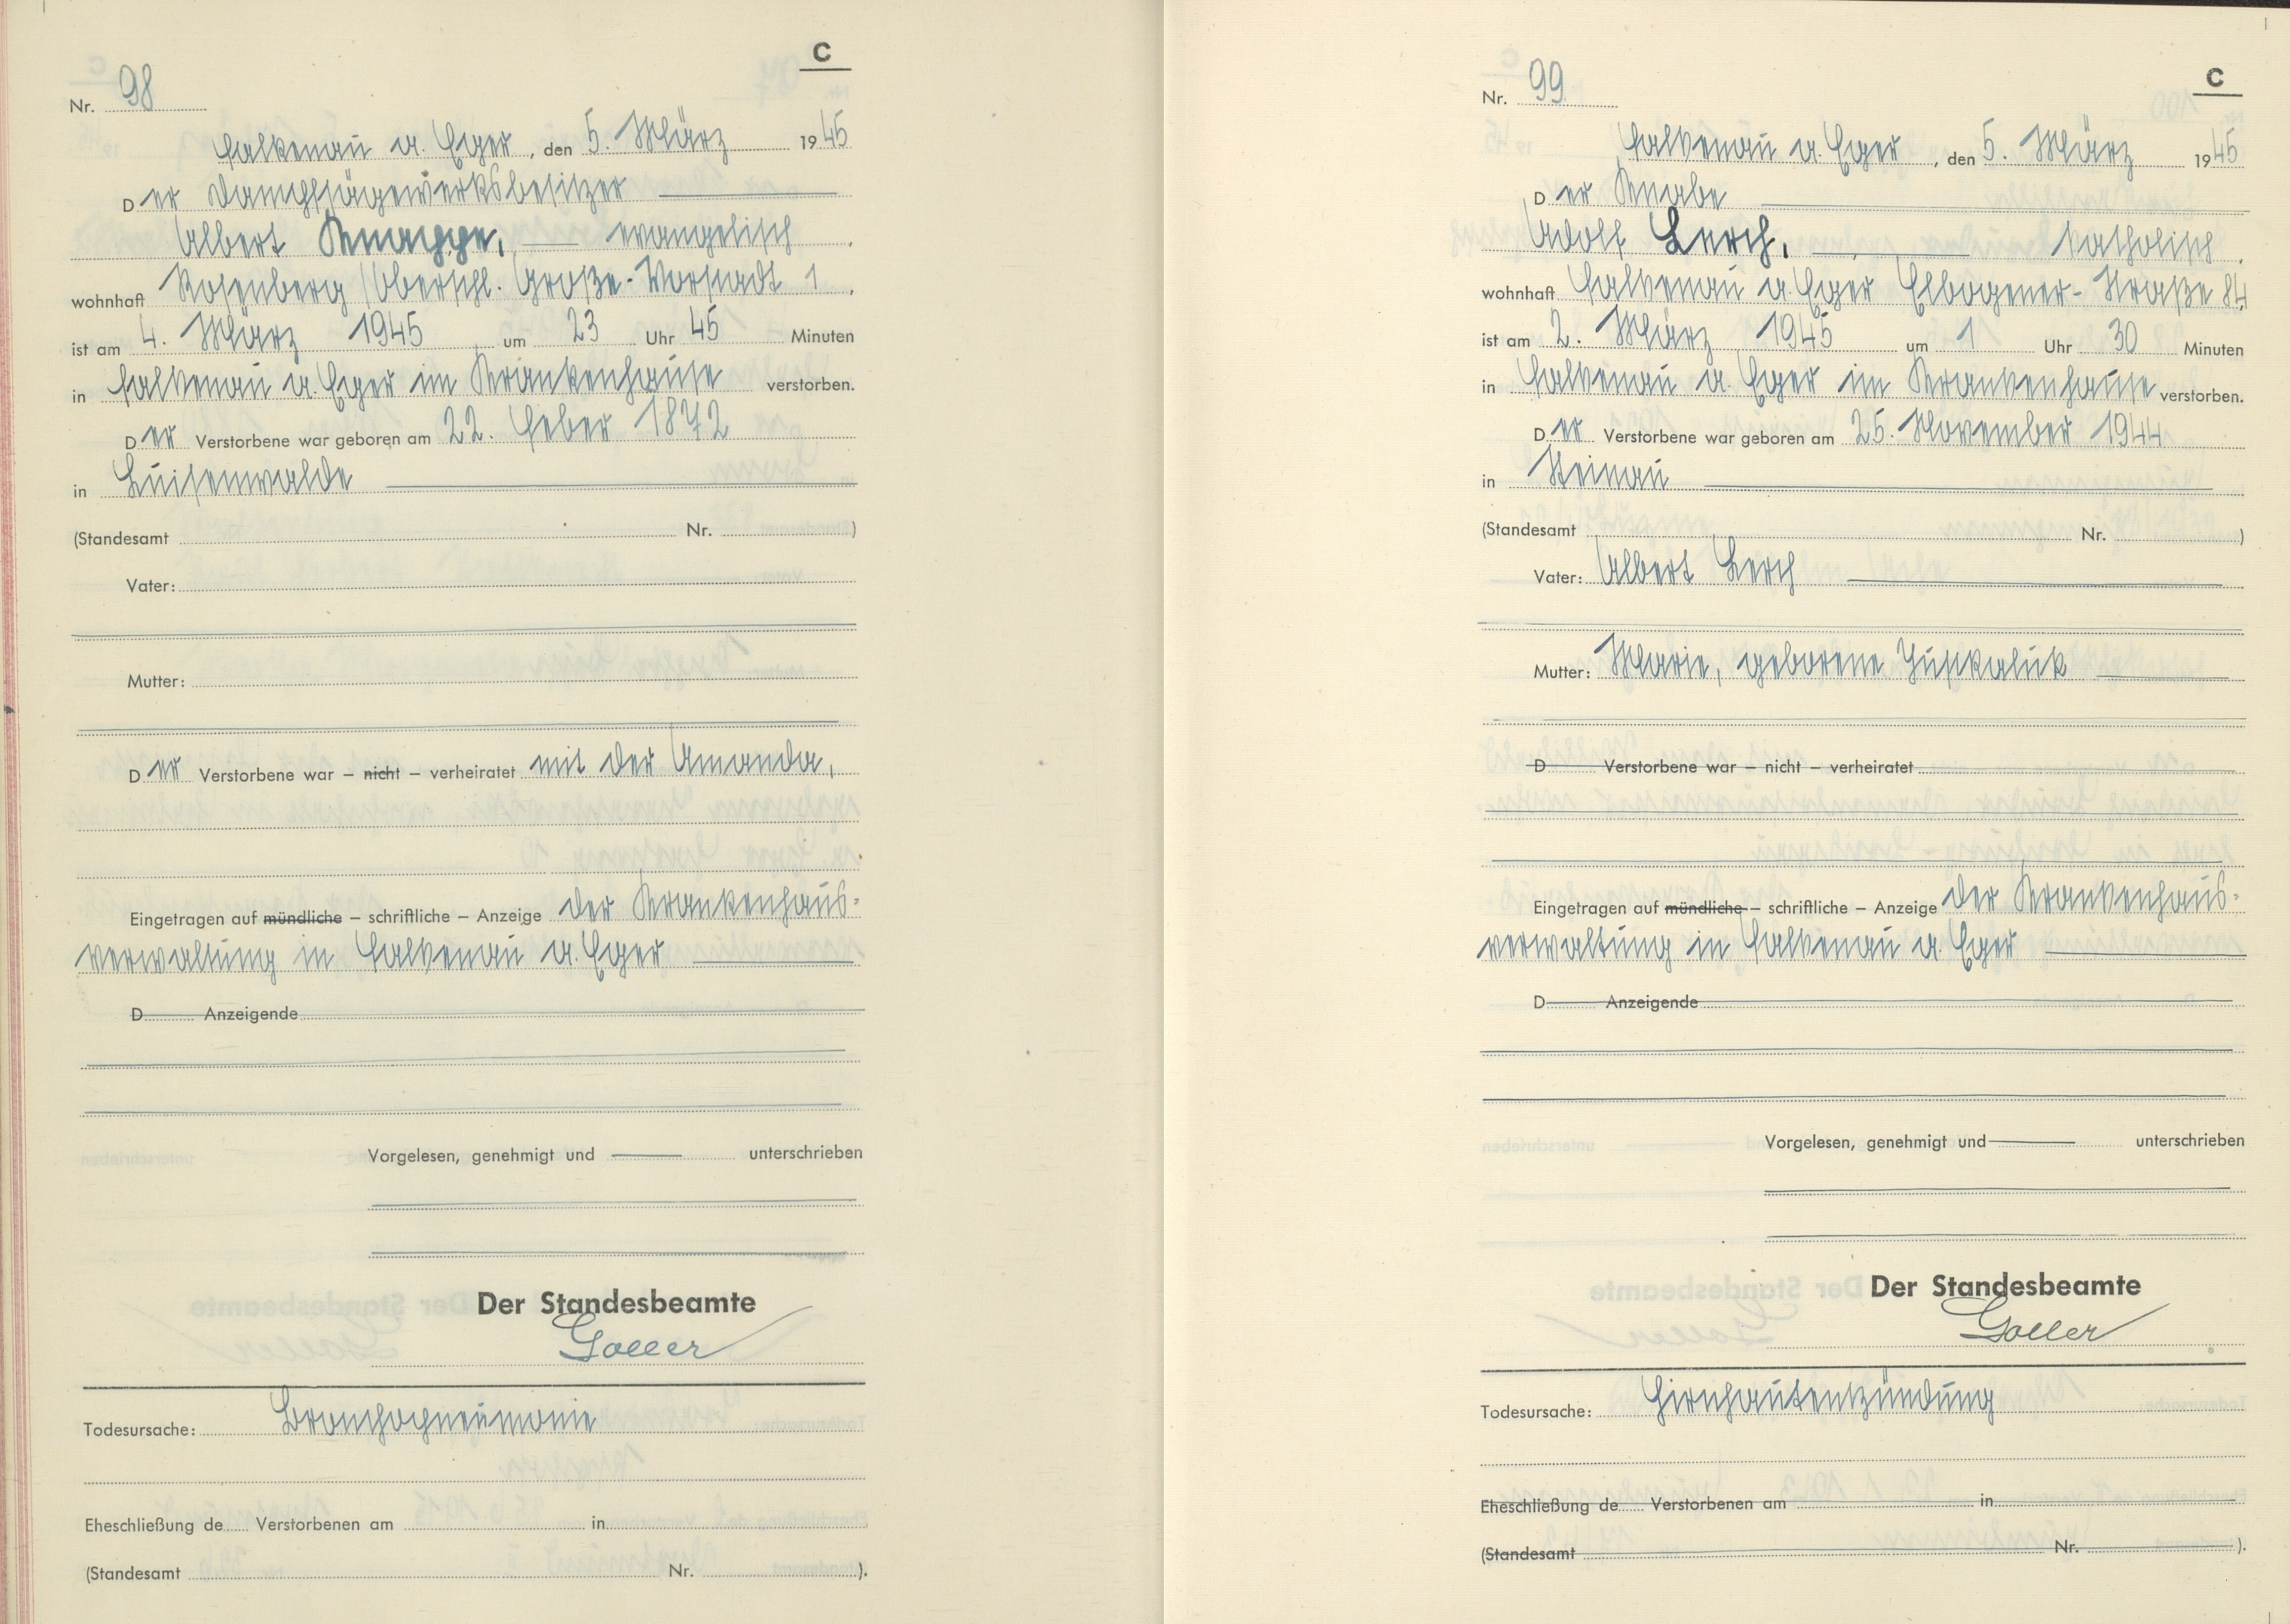 C
Nr. 98
Falkenau a. Eger, den 5. März 1945
Der Dampfsägewerksbesitzer
Albert Knappe, evangelisch
wohnhaft Rosenberg/Oberschl. Große-Vorstadt 1,
ist am 4. März 1945 um 23 Uhr 45 Minuten
in Falkenau a. Eger im Krankenhause verstorben.
Der Verstorbene war geboren am 22. Feber 1872
in Luisenwalde
(Standesamt Nr. )
Vater:
Mutter:
Der Verstorbene war – nicht – verheiratet mit der Amanda,
Eingetragen auf mündliche – schriftliche – Anzeige der Krankenhaus-
verwaltung in Falkenau a. Eger
D Anzeigende
Vorgelesen, genehmigt und unterschrieben
Der Standesbeamte
Goller
Todesursache: Bronchopneumonie
Eheschließung de Verstorbenen am in
(Standesamt Nr. ).
C
Nr. 99
Falkenau a. Eger, den 5. März 1945
Der Knabe
Adolf Lerch, katholisch
wohnhaft Falkenau a. Eger Elbogener-Straße 84,
ist am 2. März 1945 um 1 Uhr 30 Minuten
in Falkenau a. Eger im Krankenhause verstorben.
Der Verstorbene war geboren am 25. November 1944
in Steinau
(Standesamt Nr. )
Vater: Albert Lerch
Mutter: Marie, geborene Juskaluk
D Verstorbene war – nicht – verheiratet
Eingetragen auf mündliche – schriftliche – Anzeige der Krankenhaus-
verwaltung in Falkenau a. Eger
D Anzeigende
Vorgelesen, genehmigt und unterschrieben
Der Standesbeamte
Goller
Todesursache: Hirnhautentzündung
Eheschließung de Verstorbenen am in
(Standesamt Nr. ).